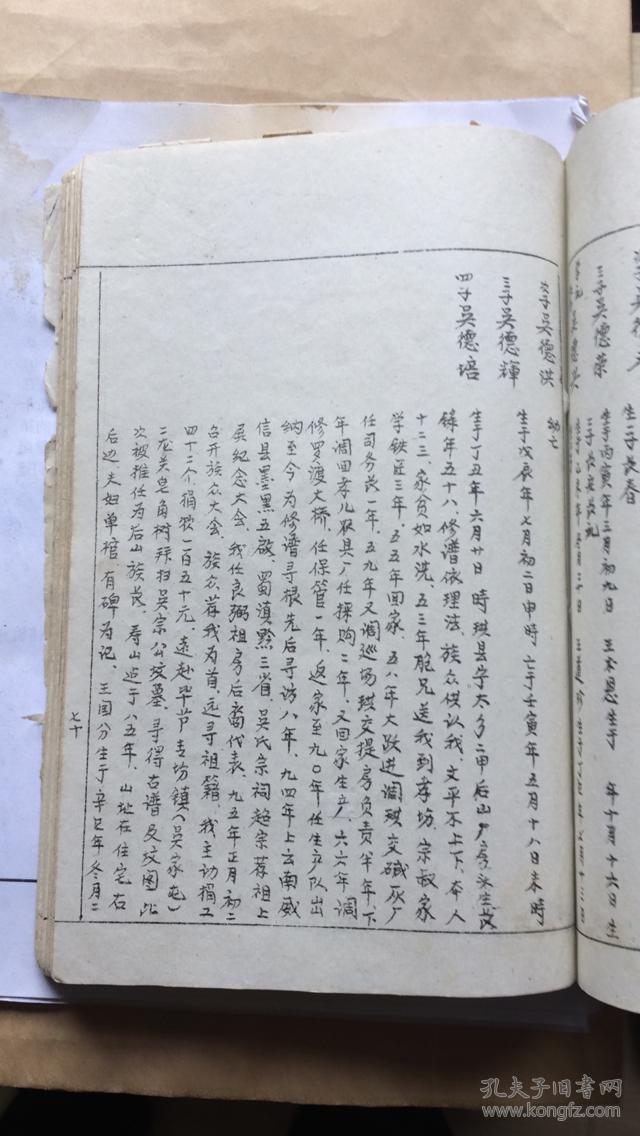 次子吴德洪
幼亡
三子吴德輝
生于戊辰年七月初二日申時 亡于壬寅年五月十八日未時
四子吴德培
生于丁丑年六月廿日 時珙县字大乡二甲后山厂房头生長
锋年五十八、修譜依理法、族众供认我、文平不上下、本人
十二三、家贫如水洗、五三年胞兄送我到孝坊、宗叔家
学铁匠三年、五五年回家、五八年大跃进调珙交碱灰厂
任司务长一年、五九年又调巡场珙交提房负责半年、下
年调回孝儿农具厂任採购二年、又回家生产、六六年调
修罗渡大桥、任保管一年、返家至九〇年任生产队出
纳至今为修谱寻根先后寻访八年、九四年上云南威
信县墨黑五啟、蜀滇黔三省、吴氏宗祠超宗荐祖上
展纪念大会、我任良弼祖房后裔代表、九五年正月初二
召开族众大会、族众荐我为首、远寻祖籍、我主动捐工
四十二个、捐欵一百五十元、遠赴毕节青场鎮（吴家屯）
二龙关皂角树拜扫吴宗公坟墓、寻得古谱及坟图此
次被推任为后山族长、寿山造于八五年、山址在住宅右
后边夫妇单棺、有碑为记、王国分生于辛巳年冬月二
七十
三子吴德荣
生二子長春
生于丙寅年三月初九日
年十月十六日生
孔夫子旧书网
www.kongfz.com